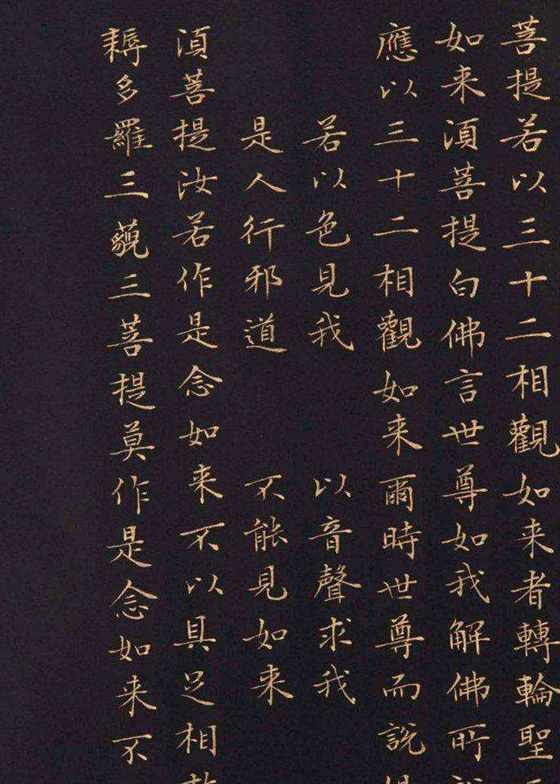 菩提若以三十二相觀如来者轉輪聖
如来湏菩提白佛言世尊如我解佛所
應以三十二相觀如来爾時世尊而說
若以色見我 以音聲求我
是人行邪道 不能見如来
湏菩提汝若作是念如来不以具足相
耨多羅三藐三菩提莫作是念如来不